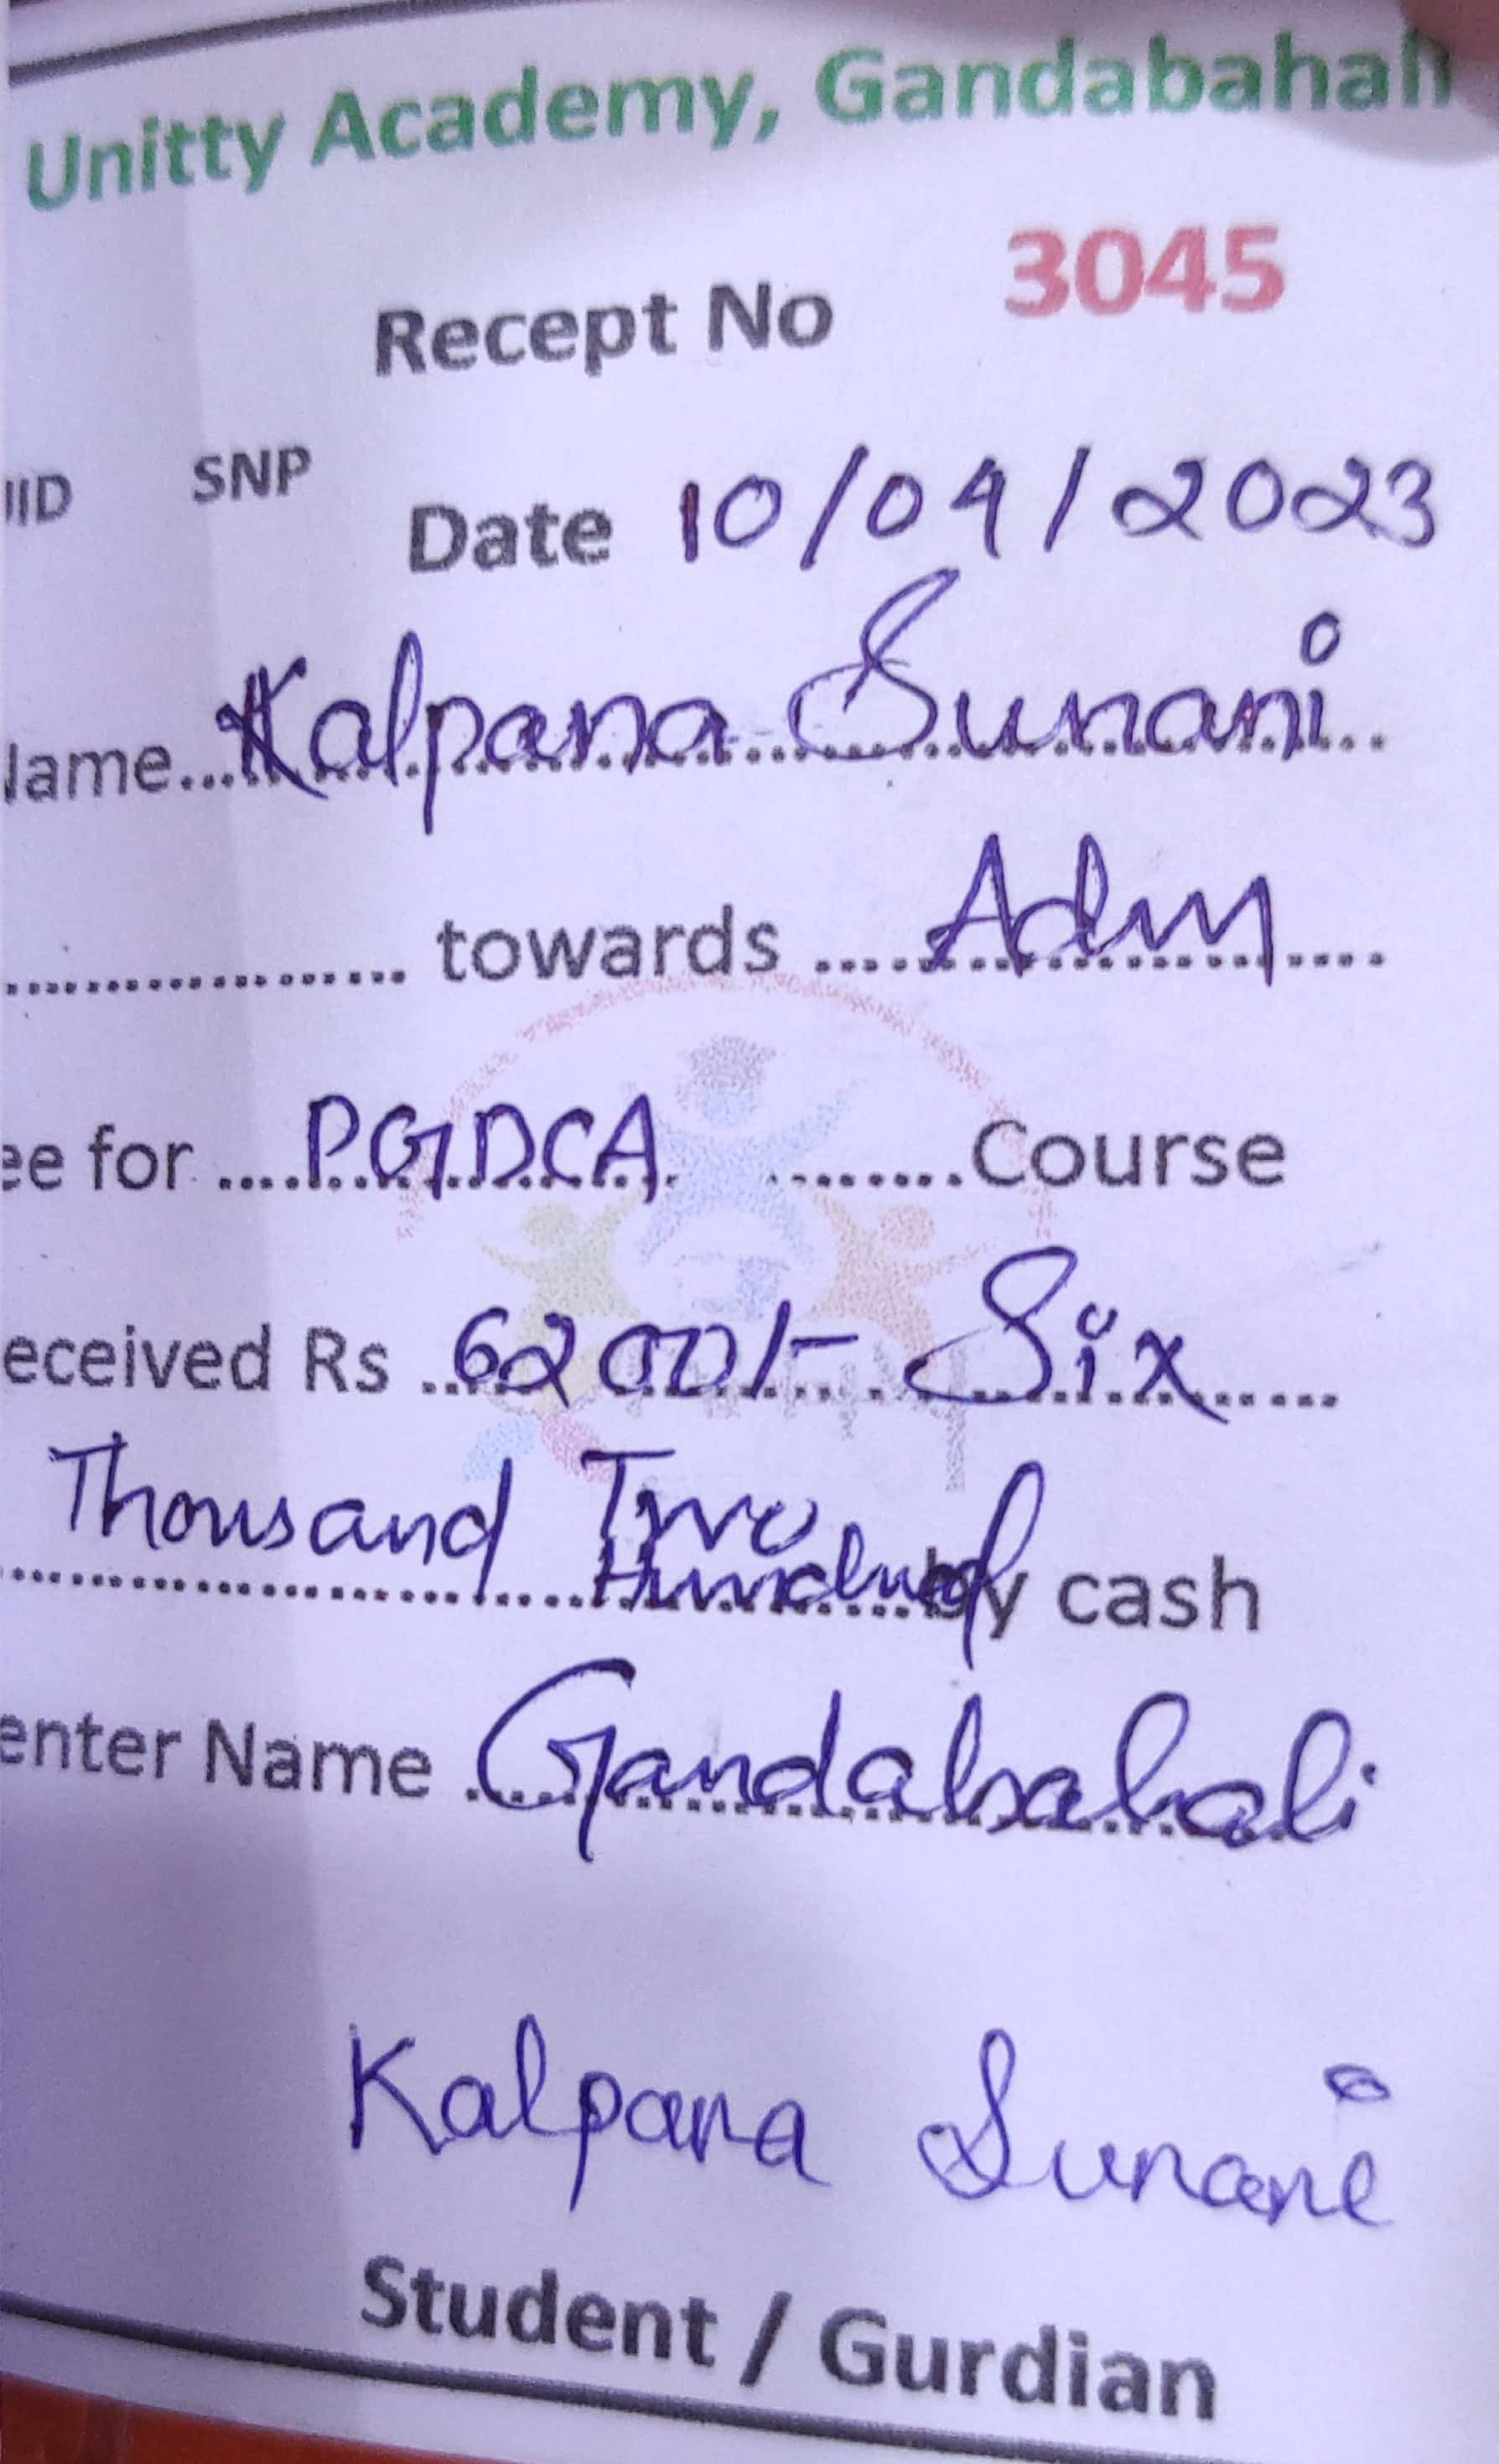 Unitty Academy, Gandabahali
Recept No 3045
IID SNP
Date 10/04/2023
Name... Kalpana Sunani
.................. towards .... Adm ....
ee for .... PGDCA ........ Course
eceived Rs .. 6200/- Six .....
Thousand Two
Hundred by cash
enter Name .... Gandabahali
Kalpana Sunani
Student / Gurdian